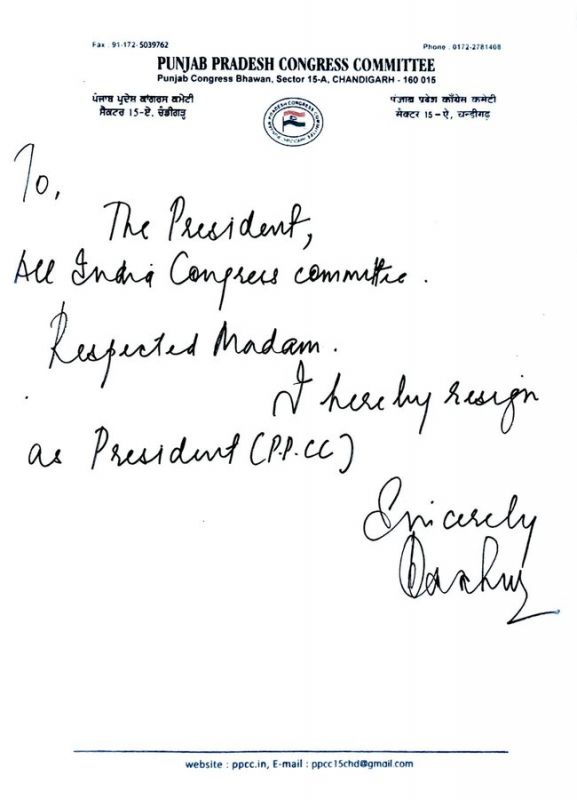 Fax : 91-172-5039762
Phone : 0172-2781468
PUNJAB PRADESH CONGRESS COMMITTEE
Punjab Congress Bhawan, Sector 15-A, CHANDIGARH - 160 015
ਪੰਜਾਬ ਪ੍ਰਦੇਸ਼ ਕਾਂਗਰਸ ਕਮੇਟੀ
ਸੈਕਟਰ 15-ਏ, ਚੰਡੀਗੜ੍ਹ
पंजाब प्रदेश काँग्रेस कमेटी
सेक्टर 15-ऐ, चन्डीगढ़
To,
The President,
All India Congress committee.
Respected Madam.
I hereby resign
as President (P.P.CC)
Sincerely
website : ppcc.in, E-mail : ppcc15chd@gmail.com